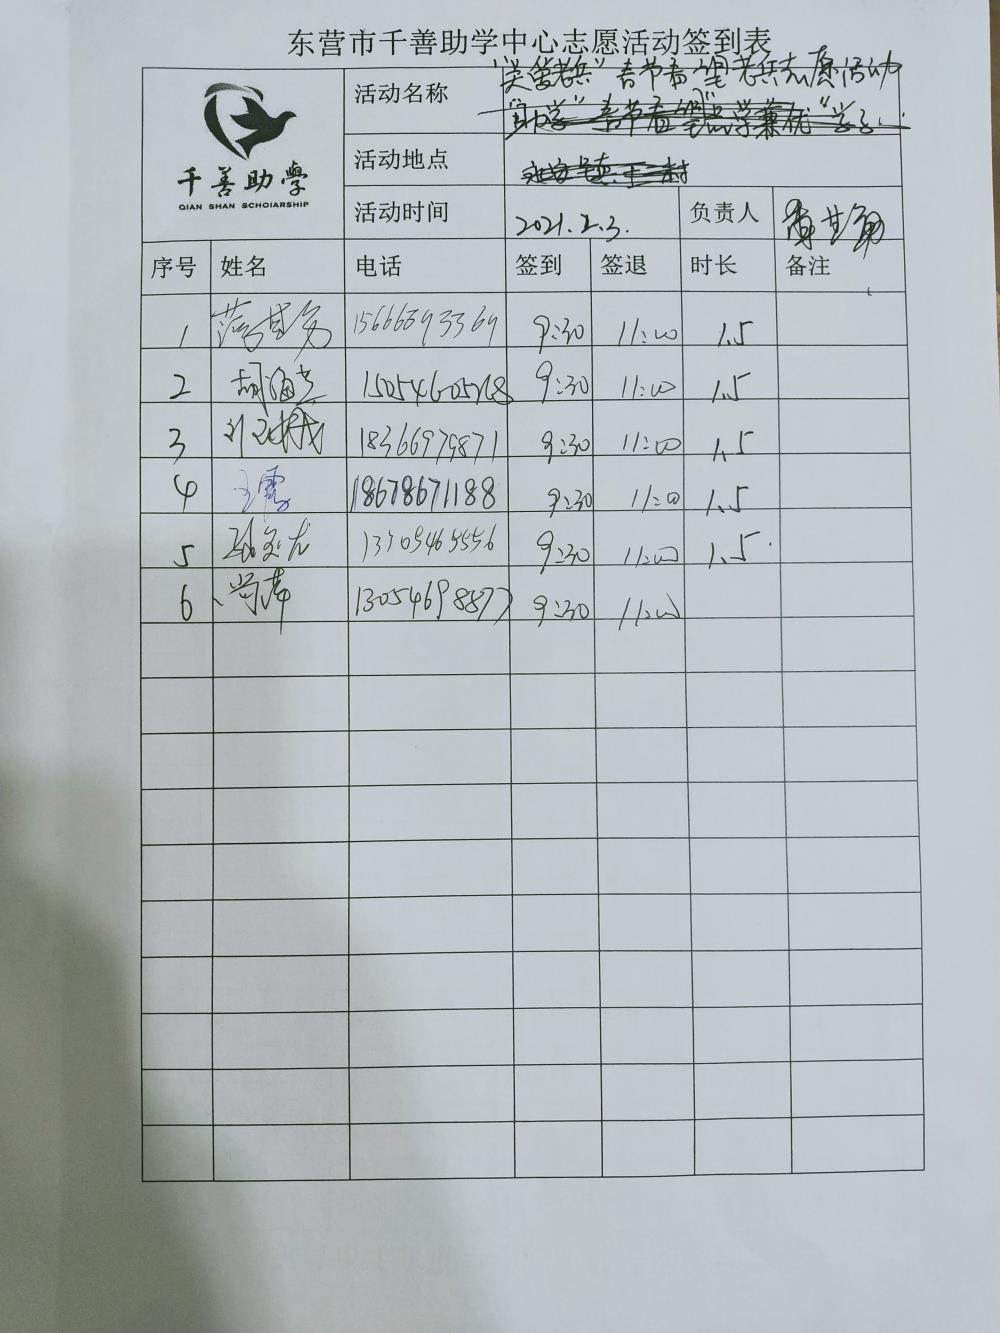 东营市千善助学中心志愿活动签到表
千善助學
QIAN SHAN SCHOlARSHIP
活动名称 "关爱老兵"春节看望老兵志愿活动
"助学"春节看望品学兼优"学子
活动地点
活动时间 2021.2.3. 负责人
序号 姓名 电话 签到 签退 时长 备注
1 15666393369 9:30 11:00 1.5
2 9:30 11:00 1.5
3 18366979871 9:30 11:00 1.5
4 王霞 18678671188 9:30 11:00 1.5
5 9:30 11:00 1.5
6 尚萍 13054698877 9:30 11:00